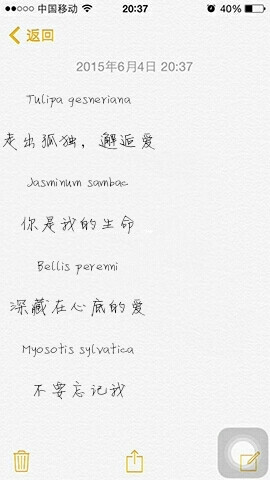 中国移动
20:37
40%
返回
2015年6月4日 20:37
Tulipa gesneriana
走出孤独，邂逅爱
Jasminum sambac
你是我的生命
Bellis perenni
深藏在心底的爱
Myosotis sylvatica
不要忘记我